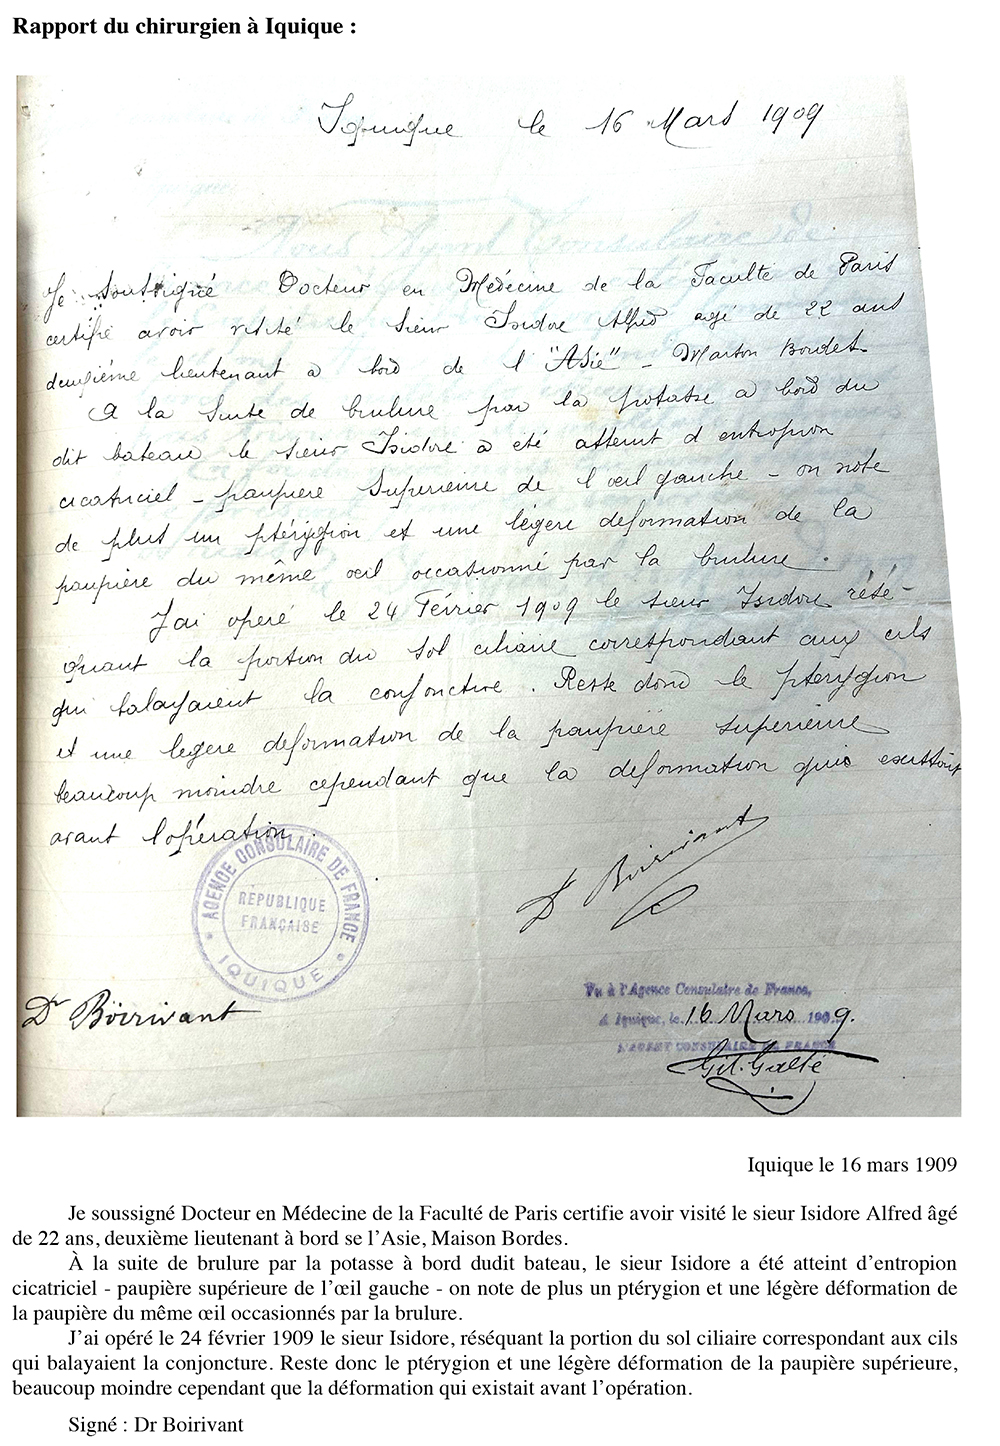 Rapport du chirurgien à Iquique :
Iquique le 16 Mars 1909
Je soussigné Docteur en Médecine de la Faculté de Paris
certifie avoir visité le sieur Isidore Alfred agé de 22 ans
deuxième lieutenant a bord de l "Asie" - Maison Bordes.
A la suite de brulure par la potasse a bord du
dit bateau le sieur Isidore a été atteint d entropion
cicatriciel - paupière superieure de l œil gauche - on note
de plus un ptérygion et une légère deformation de la
paupière du même œil occasionné par la brulure.
J'ai operé le 24 Février 1909 le sieur Isidore résé-
quant la portion du sol ciliaire correspondant aux cils
qui balayaient la conjonctive. Reste donc le pterygion
et une legère deformation de la paupière superieure
beaucoup moindre cependant que la deformation qui existait
avant l'opération.
Dr Boirivant
AGENCE CONSULAIRE DE FRANCE
RÉPUBLIQUE
FRANÇAISE
IQUIQUE
Dr Boirivant
Vu à l'Agence Consulaire de France,
A Iquique, le 16 Mars 1909.
L'AGENT CONSULAIRE DE FRANCE
Iquique le 16 mars 1909
Je soussigné Docteur en Médecine de la Faculté de Paris certifie avoir visité le sieur Isidore Alfred âgé
de 22 ans, deuxième lieutenant à bord se l'Asie, Maison Bordes.
À la suite de brulure par la potasse à bord dudit bateau, le sieur Isidore a été atteint d'entropion
cicatriciel - paupière supérieure de l'œil gauche - on note de plus un ptérygion et une légère déformation de
la paupière du même œil occasionnés par la brulure.
J'ai opéré le 24 février 1909 le sieur Isidore, réséquant la portion du sol ciliaire correspondant aux cils
qui balayaient la conjoncture. Reste donc le ptérygion et une légère déformation de la paupière supérieure,
beaucoup moindre cependant que la déformation qui existait avant l'opération.
Signé : Dr Boirivant